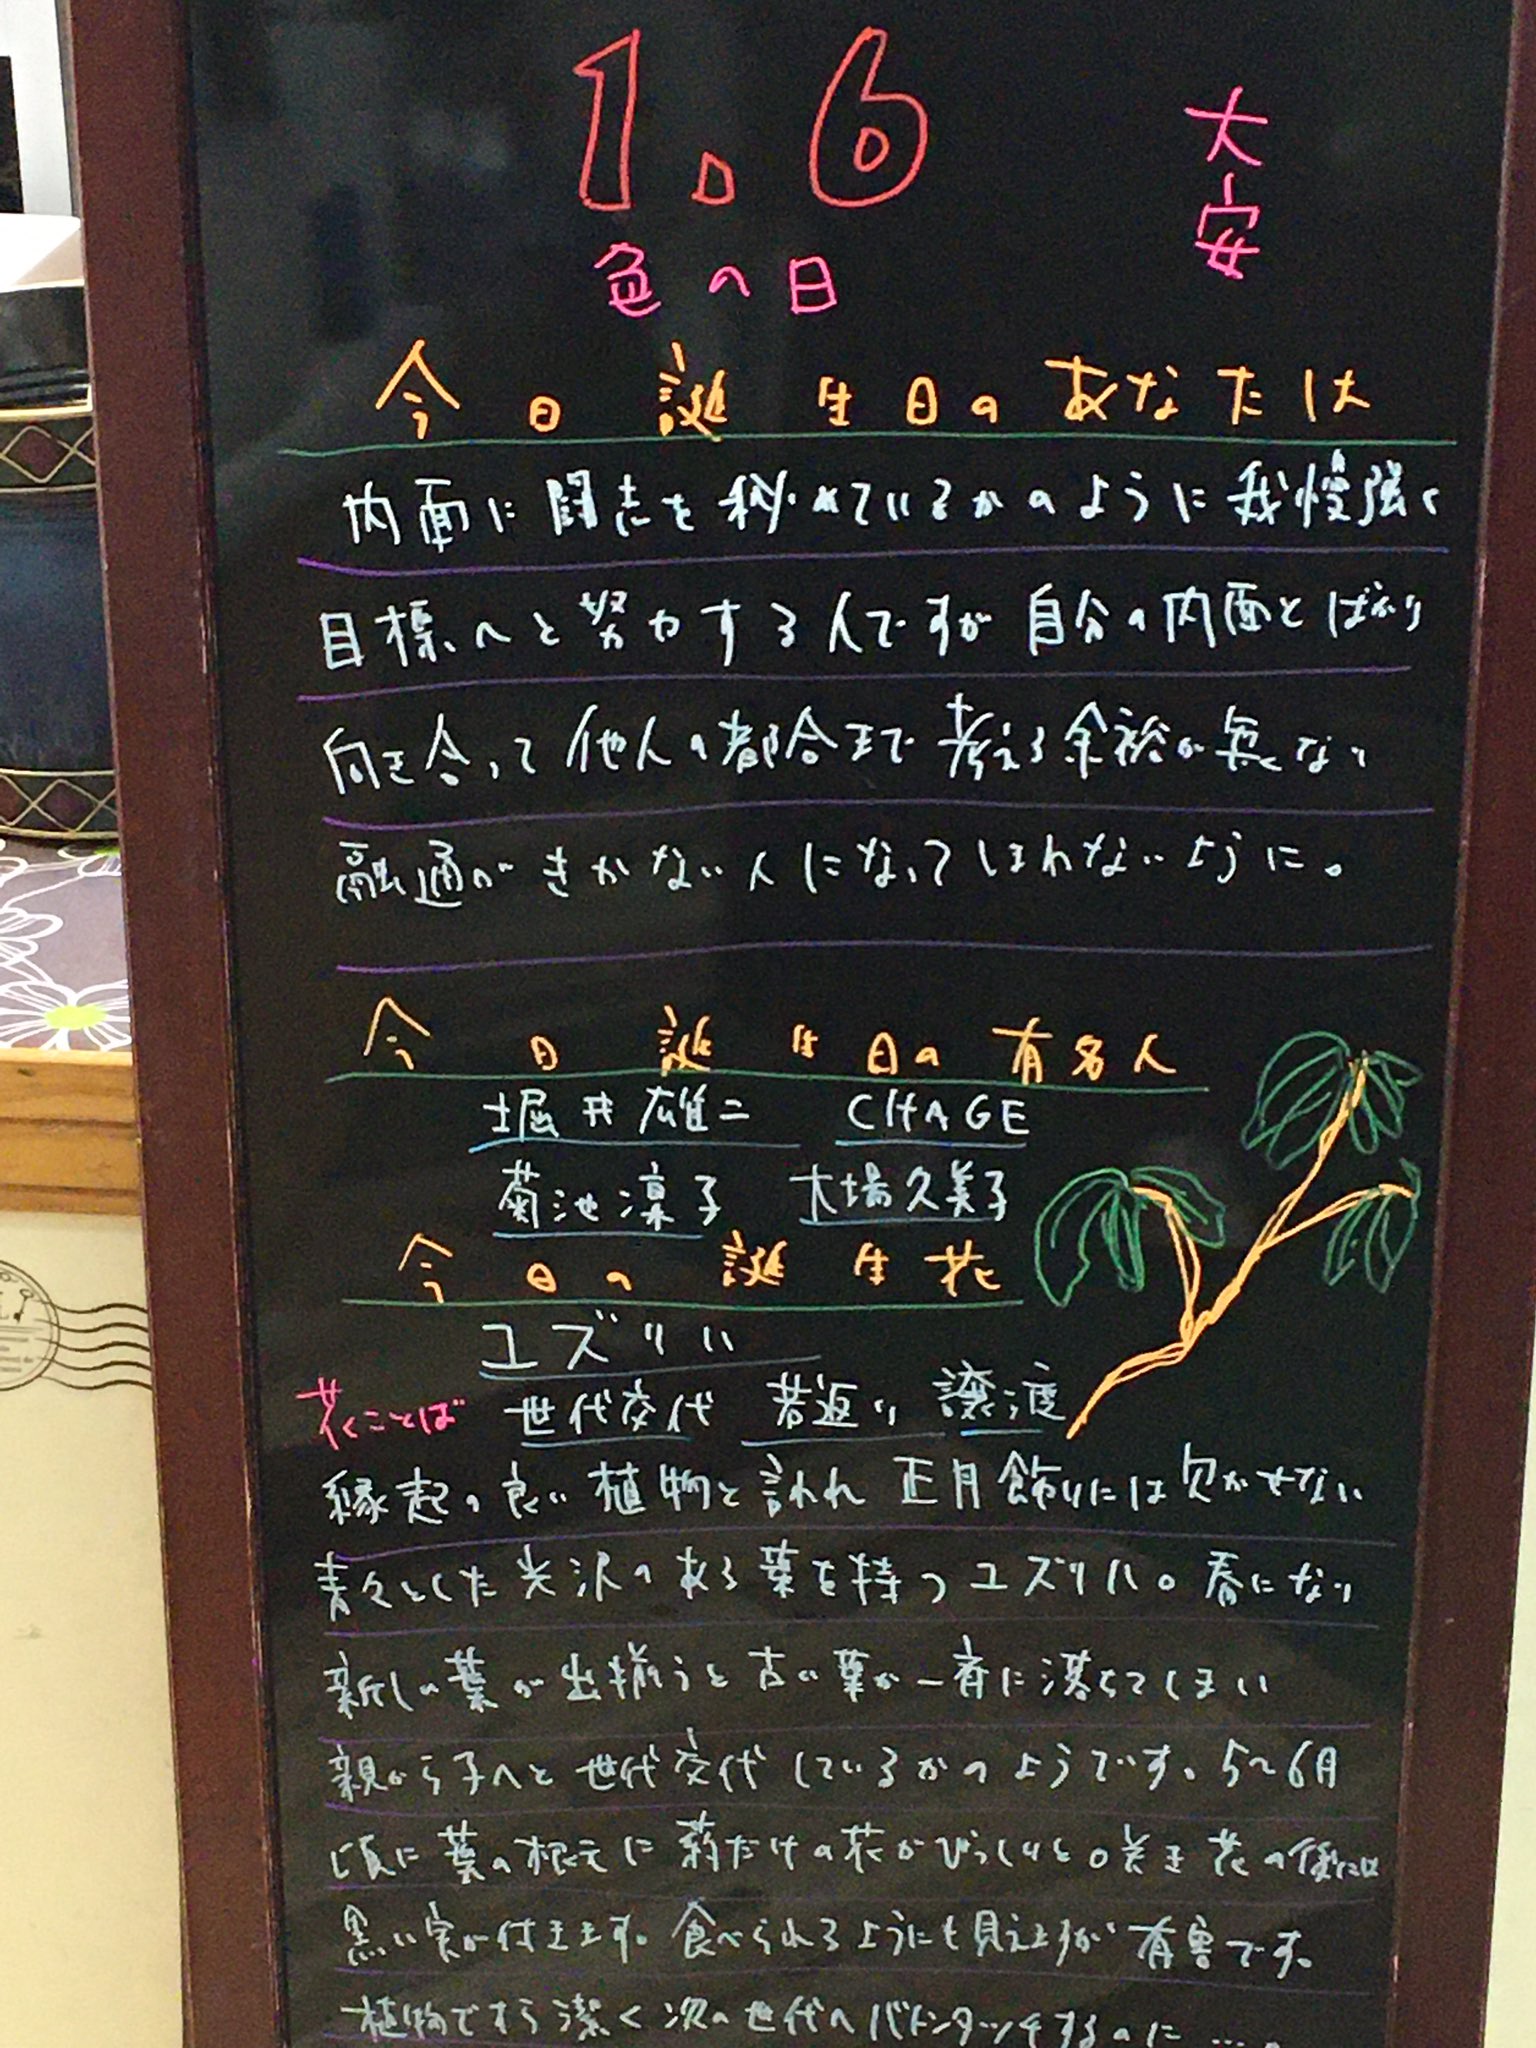 1.6
大安
色の日
今日誕生日のあなたは
内面に闘志を秘めているかのように我慢強く
目標へと努力する人ですが自分の内面とばかり
向き合って他人の都合まで考える余裕が無くなり
融通がきかない人になってしまわないように。
今日誕生日の有名人
堀井雄二 CHAGE
菊池凛子 大場久美子
今日の誕生花
ユズリハ
花ことば 世代交代 若返り 譲渡
縁起の良い植物と言われ正月飾りには欠かせない
青々とした光沢のある葉を持つユズリハ。春になり
新しい葉が出揃うと古い葉が一斉に落ちてしまい
親から子へと世代交代しているかのようです。5〜6月
頃に葉の根元に蕊だけの花がびっしりと咲き花の後には
黒い実が付きます。食べられるようにも見えますが有毒です。
植物ですら潔く次の世代へバトンタッチするのに….。